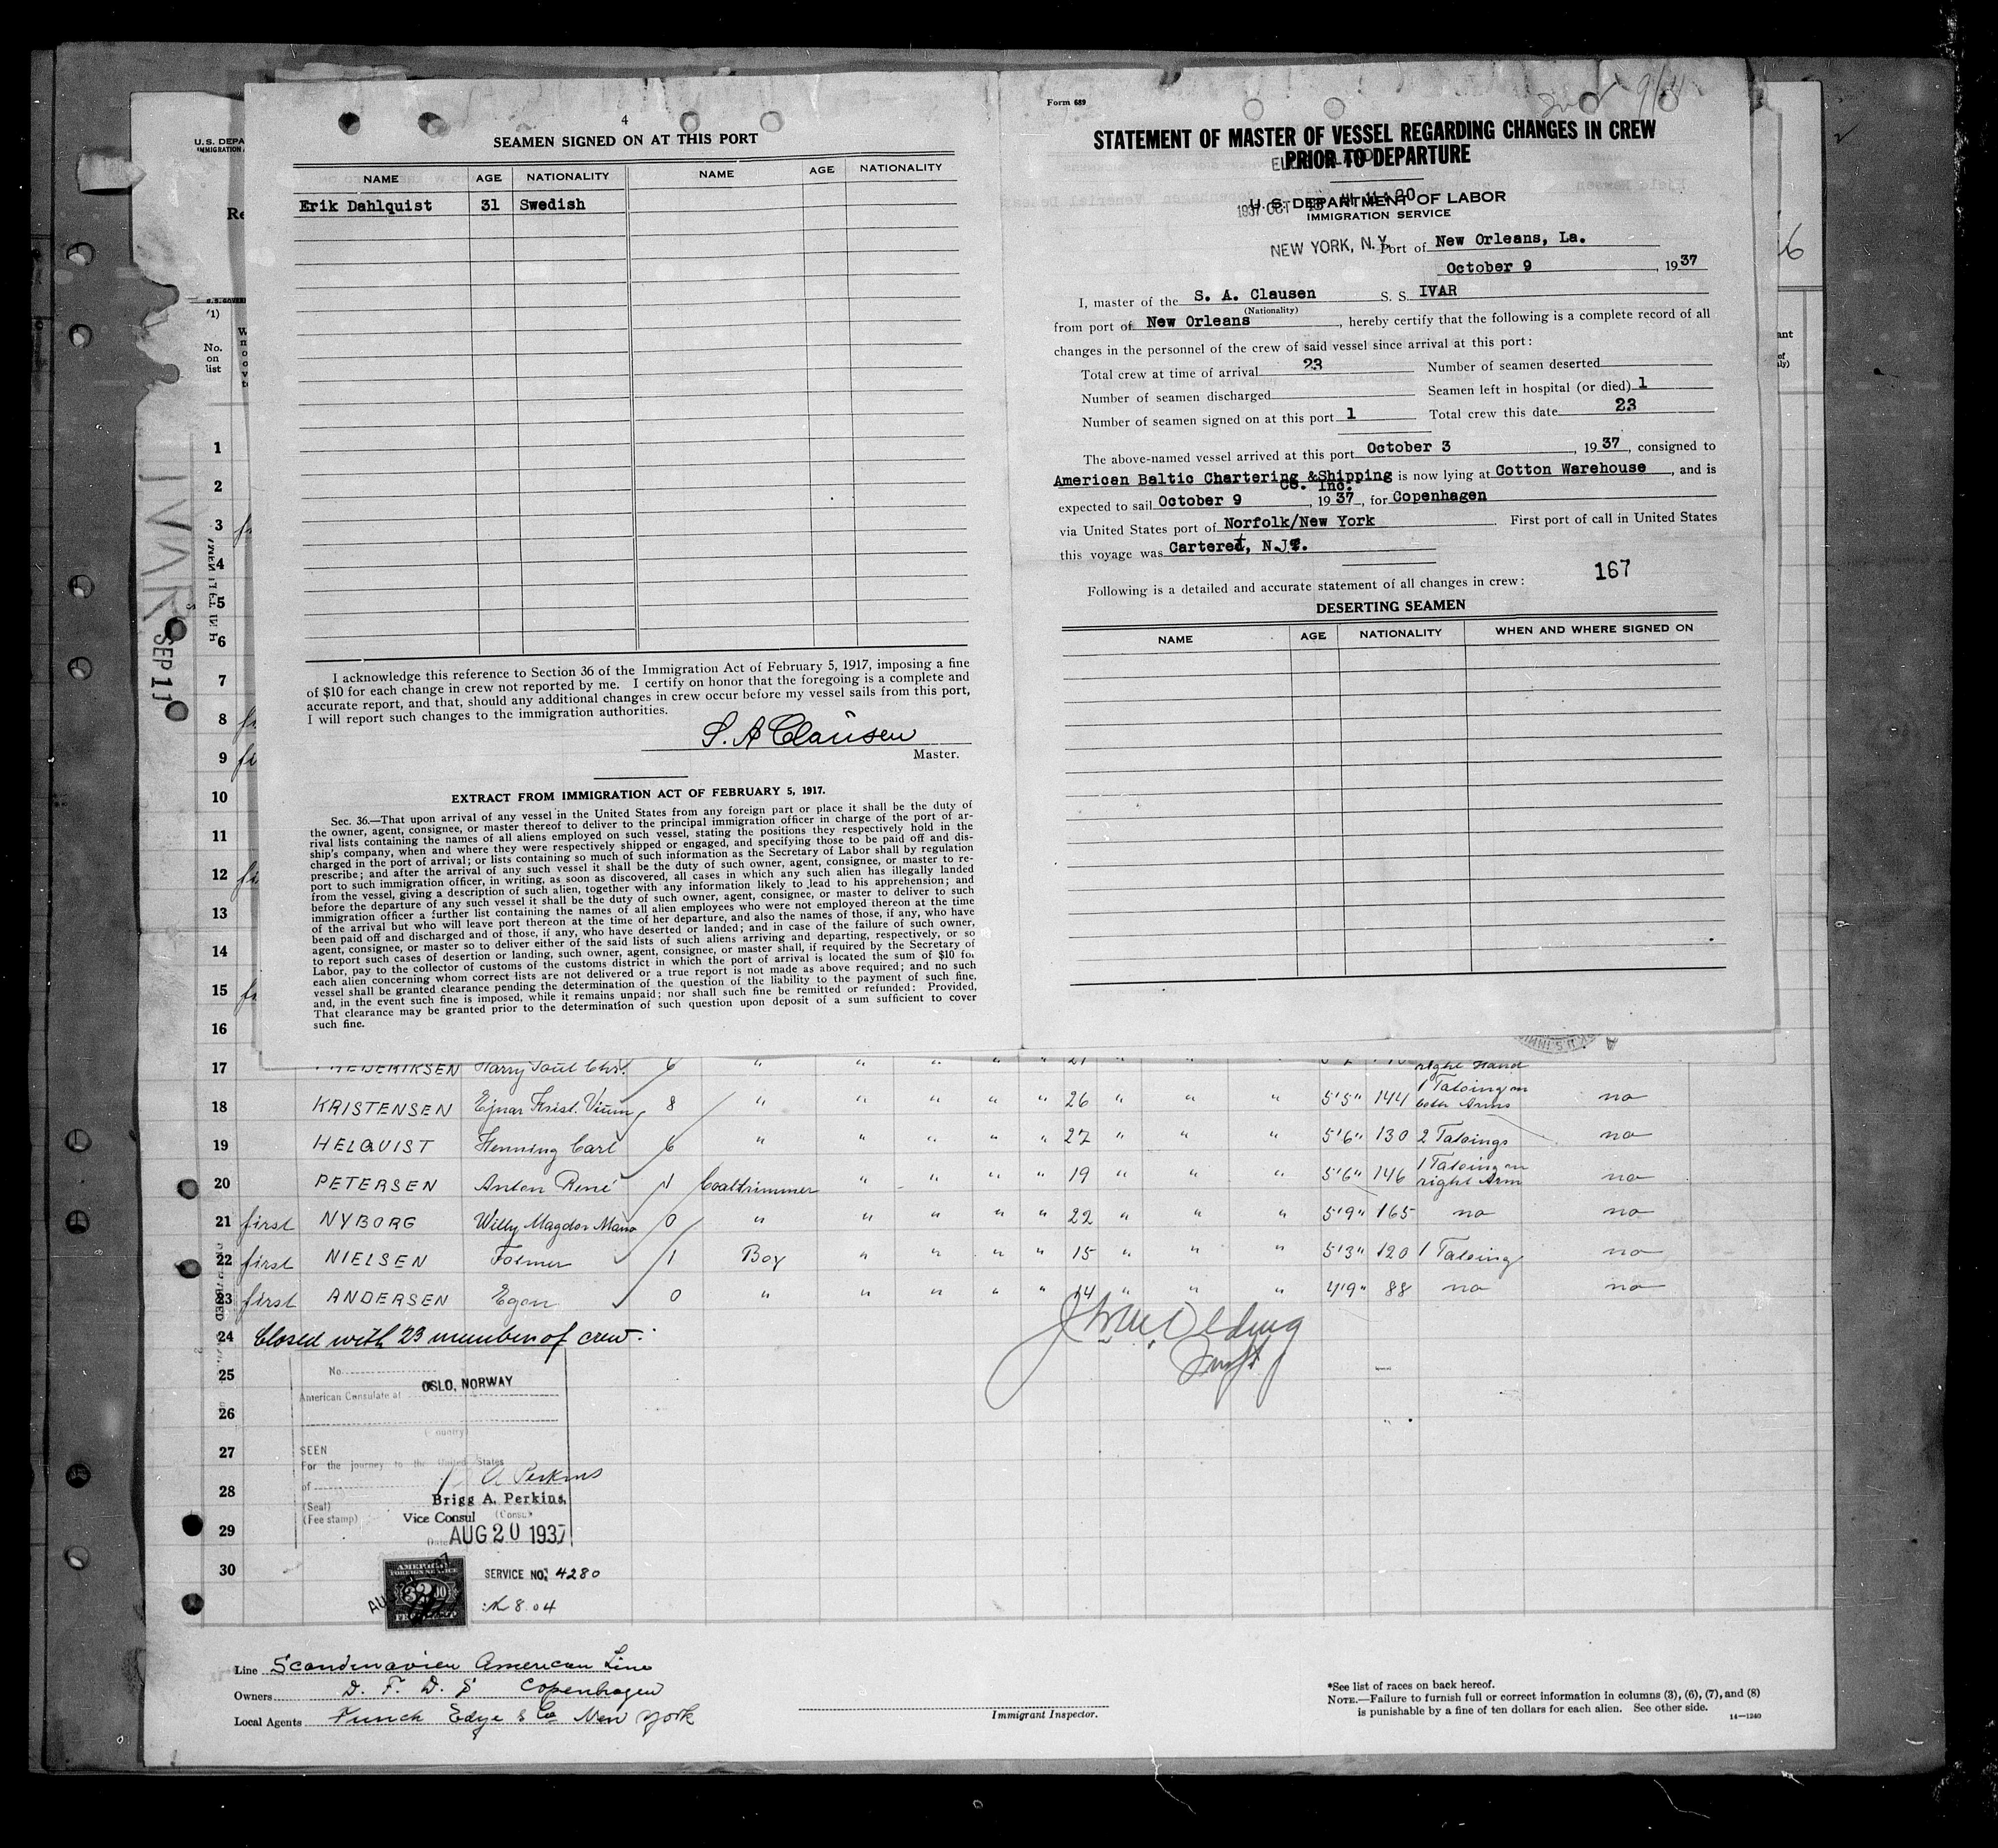 4
SEAMEN SIGNED ON AT THIS PORT
NAME AGE NATIONALITY NAME AGE NATIONALITY
Erik Dahlquist 31 Swedish
I acknowledge this reference to Section 36 of the Immigration Act of February 5, 1917, imposing a fine
of $10 for each change in crew not reported by me. I certify on honor that the foregoing is a complete and
accurate report, and that, should any additional changes in crew occur before my vessel sails from this port,
I will report such changes to the immigration authorities.
S. A Clausen
Master.
EXTRACT FROM IMMIGRATION ACT OF FEBRUARY 5, 1917.
Sec. 36.—That upon arrival of any vessel in the United States from any foreign part or place it shall be the duty of
the owner, agent, consignee, or master thereof to deliver to the principal immigration officer in charge of the port of ar-
rival lists containing the names of all aliens employed on such vessel, stating the positions they respectively hold in the
ship's company, when and where they were respectively shipped or engaged, and specifying those to be paid off and dis-
charged in the port of arrival; or lists containing so much of such information as the Secretary of Labor shall by regulation
prescribe; and after the arrival of any such vessel it shall be the duty of such owner, agent, consignee, or master to re-
port to such immigration officer, in writing, as soon as discovered, all cases in which any such alien has illegally landed
from the vessel, giving a description of such alien, together with any information likely to lead to his apprehension; and
before the departure of any such vessel it shall be the duty of such owner, agent, consignee, or master to deliver to such
immigration officer a further list containing the names of all alien employees who were not employed thereon at the time
of the arrival but who will leave port thereon at the time of her departure, and also the names of those, if any, who have
been paid off and discharged and of those, if any, who have deserted or landed; and in case of the failure of such owner,
agent, consignee, or master so to deliver either of the said lists of such aliens arriving and departing, respectively, or so
to report such cases of desertion or landing, such owner, agent, consignee, or master shall, if required by the Secretary of
Labor, pay to the collector of customs of the customs district in which the port of arrival is located the sum of $10 for
each alien concerning whom correct lists are not delivered or a true report is not made as above required; and no such
vessel shall be granted clearance pending the determination of the question of the liability to the payment of such fine,
and, in the event such fine is imposed, while it remains unpaid; nor shall such fine be remitted or refunded: Provided,
That clearance may be granted prior to the determination of such question upon deposit of a sum sufficient to cover
such fine.
Form 689
STATEMENT OF MASTER OF VESSEL REGARDING CHANGES IN CREW
PRIOR TO DEPARTURE
U. S. DEPARTMENT OF LABOR
IMMIGRATION SERVICE
1937 OCT
NEW YORK, N. Y.
Port of New Orleans, La.
October 9, 1937
I, master of the S. A. Clausen S. S. IVAR
(Nationality)
from port of New Orleans, hereby certify that the following is a complete record of all
changes in the personnel of the crew of said vessel since arrival at this port:
Total crew at time of arrival 23 Number of seamen deserted
Number of seamen discharged Seamen left in hospital (or died) 1
Number of seamen signed on at this port 1 Total crew this date 23
The above-named vessel arrived at this port October 3, 1937, consigned to
American Baltic Chartering &Shipping Co. Inc. is now lying at Cotton Warehouse, and is
expected to sail October 9, 1937, for Copenhagen
via United States port of Norfolk/New York First port of call in United States
this voyage was Carteret, N.J.
167
Following is a detailed and accurate statement of all changes in crew:
DESERTING SEAMEN
NAME AGE NATIONALITY WHEN AND WHERE SIGNED ON
U. S. DEPA
IMMIGRATION
Re
(1)
No.
on
list
IVAR
SEP 11
1
2
3
4
5
6
7
8
9
10
11
12
13
14
15
16
17 FREDERIKSEN Harry Poul Chr. 6 " " " " " 21 " " " right Hand
18 KRISTENSEN Ejnar Krist. Vium 8 " " " " " 26 " " " 5'5" 144 1 Tatoing on both Arms no
19 HELQUIST Henning Carl 6 " " " " " 27 " " " 5'6" 130 2 Tatoings no
20 PETERSEN Anton René 1 Coaltrimmer " " " " 19 " " " 5'6" 146 1 Tatoing on right Arm no
21 first NYBORG Willy Magdor Mano 0 " " " " " 22 " " " 5'9" 165 no no
22 first NIELSEN Folmer 1 Boy " " " " 15 " " " 5'3" 120 1 Tatoing no
23 first ANDERSEN Egon 0 " " " " " 14 " " " 4'9" 88 no no
24 Closed with 23 members of crew.
25
26
27
28
29
30
No.
American Consulate at OSLO, NORWAY
(Country)
SEEN
For the journey to the United States
of
(Seal)
(Fee stamp)
Brigg A. Perkins,
Vice Consul (Consul)
Date AUG 20 1937
AMERICAN
FOREIGN SERVICE
SERVICE NO. 4280
8.04
Line Scandinavien American Line
Owners D. F. D. S Copenhagen
Local Agents Funch Edye & Co New York
Immigrant Inspector.
*See list of races on back hereof.
NOTE.—Failure to furnish full or correct information in columns (3), (6), (7), and (8)
is punishable by a fine of ten dollars for each alien. See other side.
14—1240